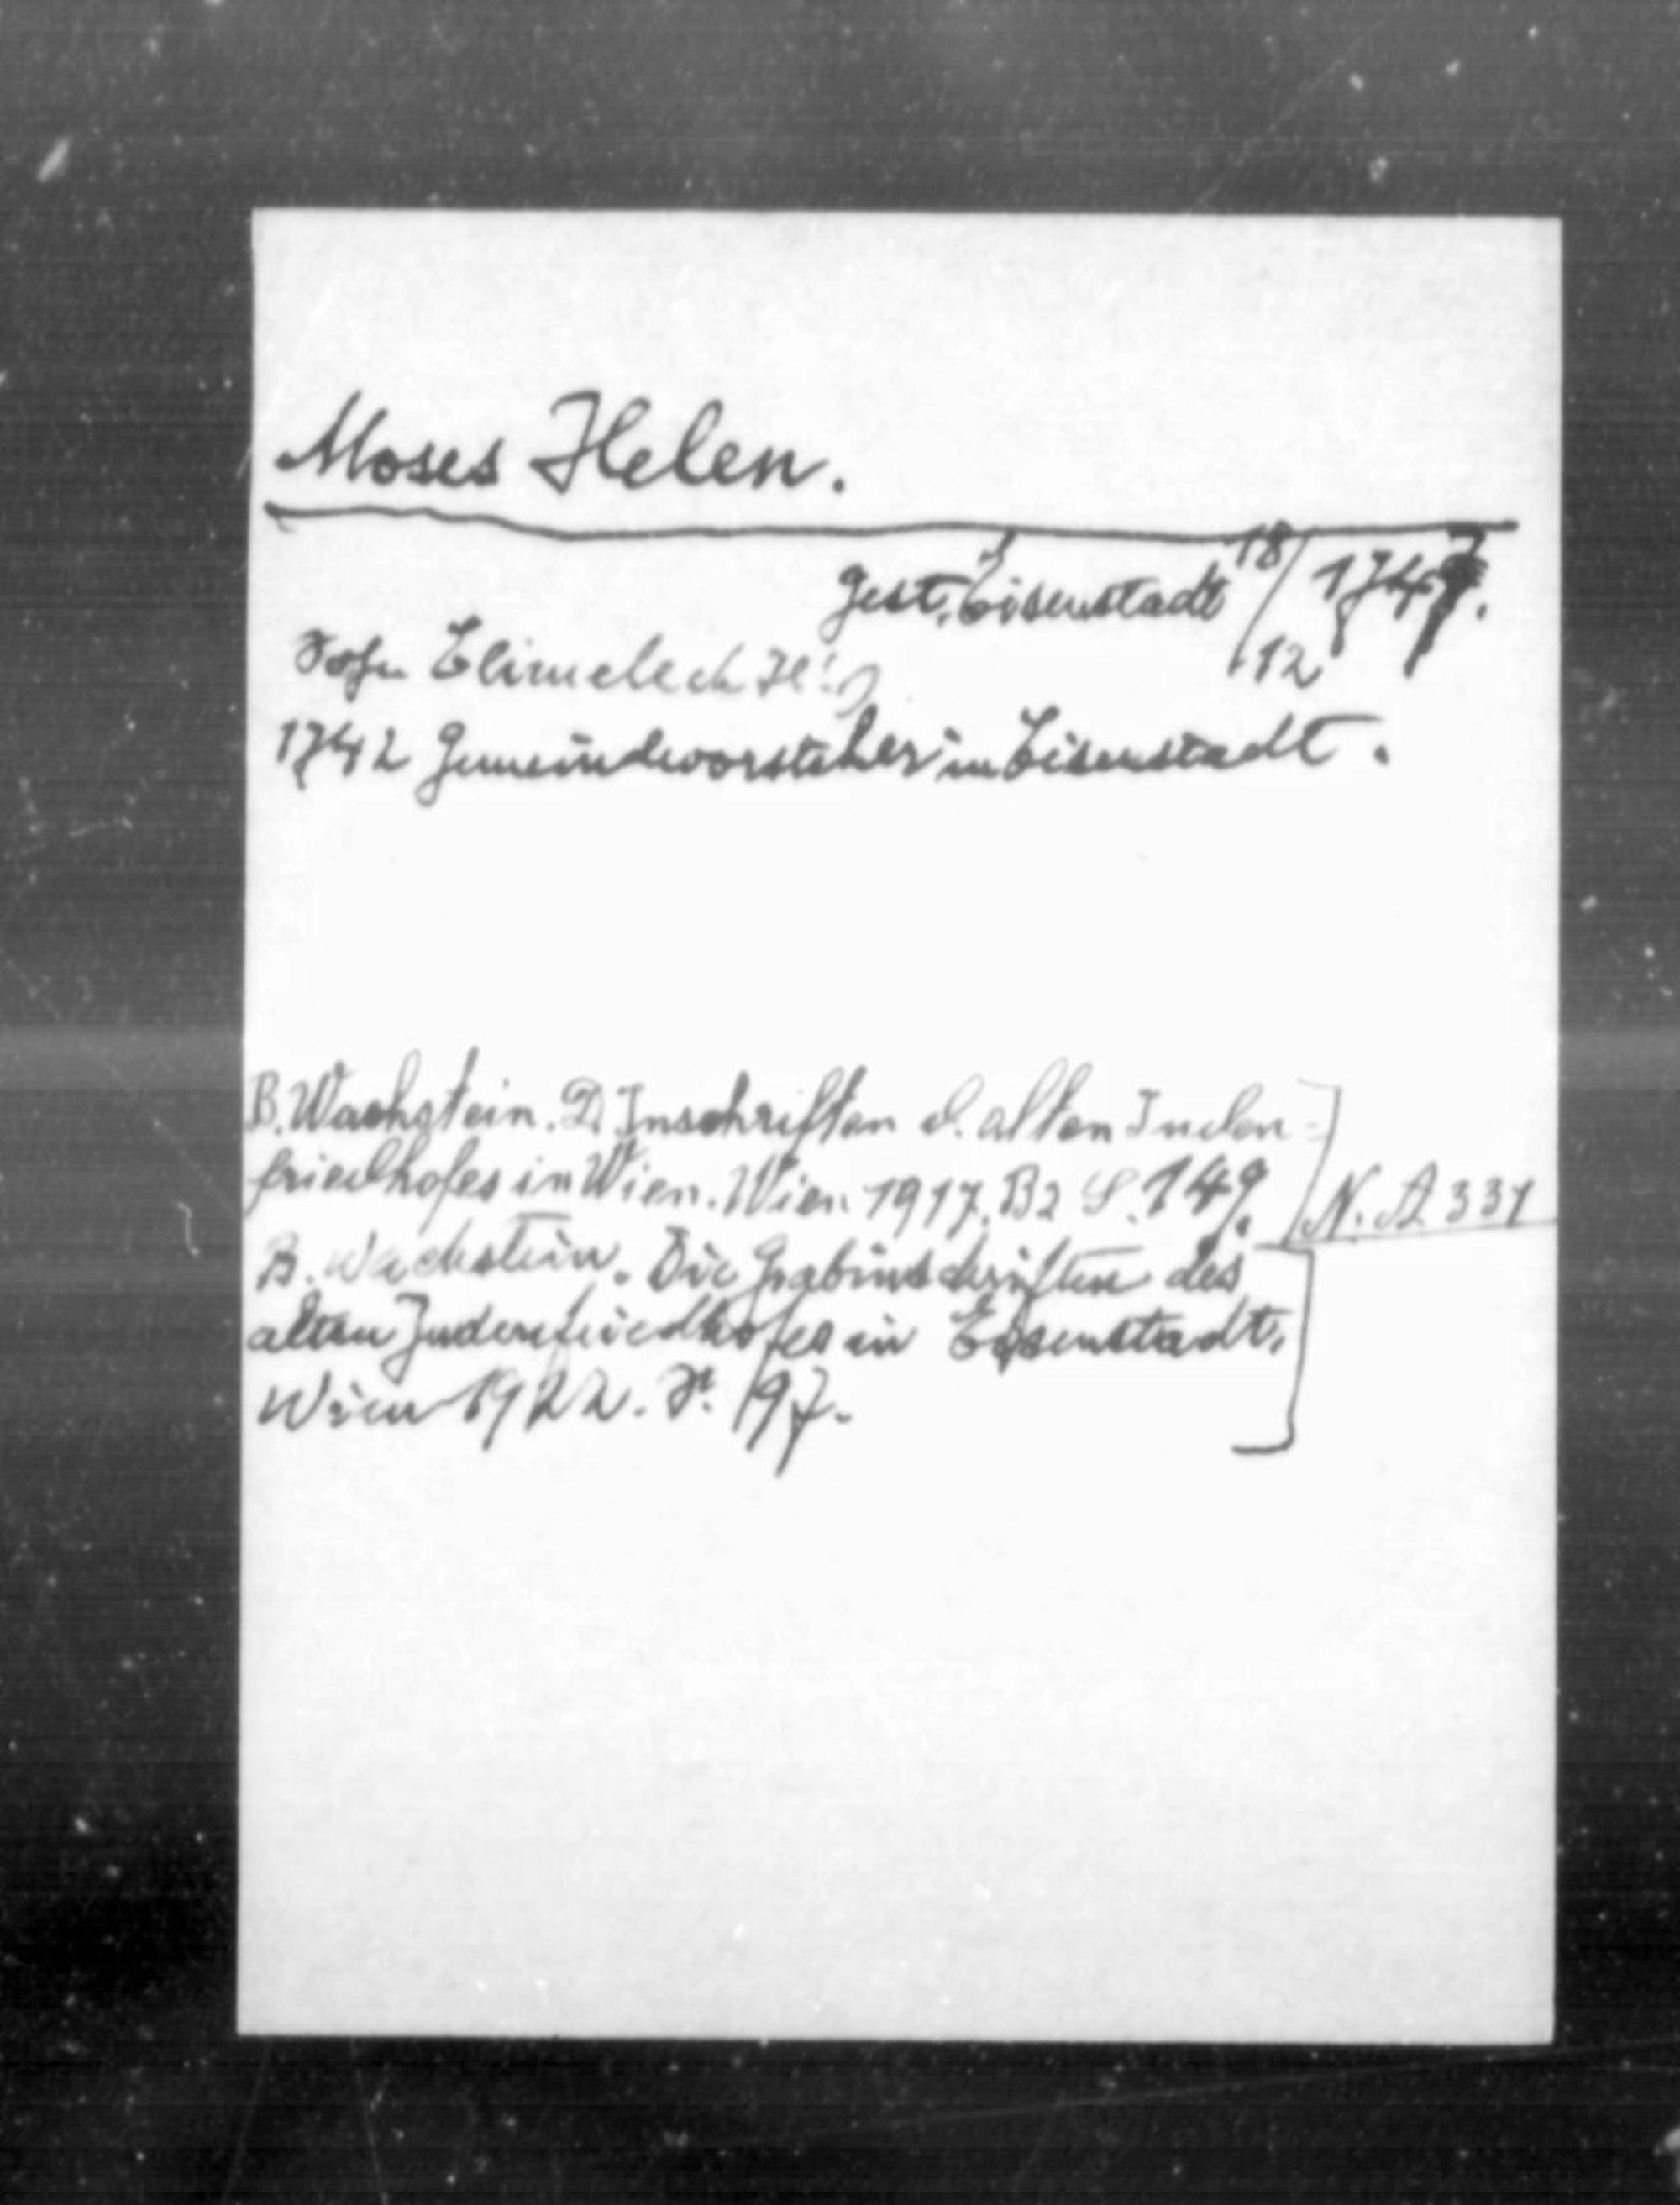 Moses Helen.
gest. Eisenstadt 18/12 1747.
Sohn Elimelech H's
1742 Gemeindevorsteher in Eisenstadt.
B. Wachstein. D. Inschriften d. alten Juden-
friedhofes in Wien. Wien 1917. B2 S. 149.
N. A 331
B. Wachstein. Die Grabinschriften des
alten Judenfriedhofes in Eisenstadt,
Wien 1922. S. 197.